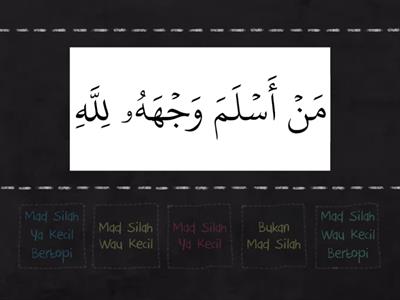 مَنۡ أَسۡلَمَ وَجۡهَهُۥ لِلَّهِ
Mad Silah
Ya Kecil
Bertopi
Mad Silah
Wau Kecil
Mad Silah
Ya Kecil
Bukan
Mad Silah
Mad Silah
Wau Kecil
Bertopi